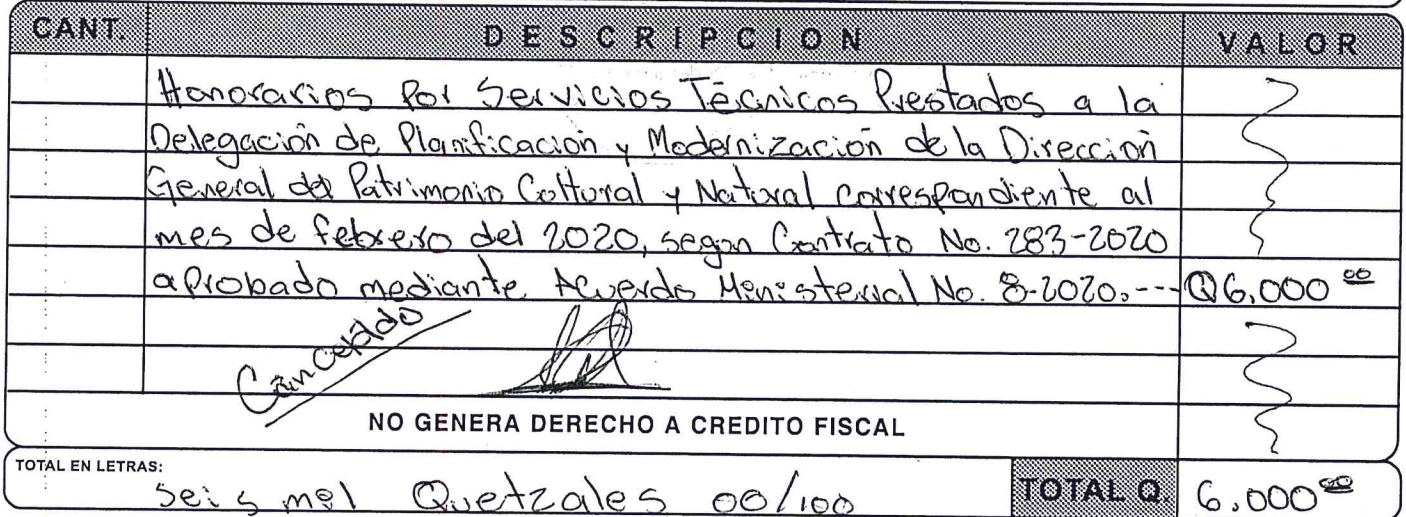 CANT. DESCRIPCION VALOR
Honorarios Por Servicios Técnicos Prestados a la
Delegación de Planificación y Modernización de la Dirección
General del Patrimonio Cultural y Natural correspondiente al
mes de febrero del 2020, segan Contrato No. 283-2020
aprobado mediante Acuerdo Ministerial No. 8-2020.--- Q6,000 00
Cancelado
NO GENERA DERECHO A CREDITO FISCAL
TOTAL EN LETRAS:
Seis mil Quetzales 00/100 TOTAL Q. 6,000 00